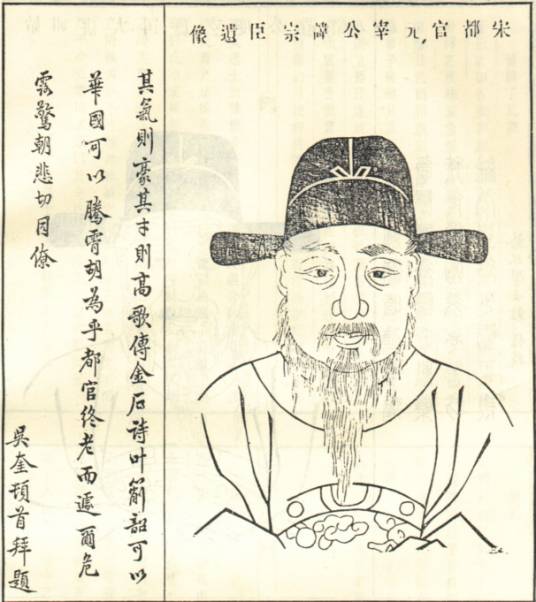 宋都官元宰公諱宗臣遺像
其氣則豪其才則高歌傳金石詩叶箾韶可以
華國可以騰霄胡為乎都官終老而遽爾危
露驚朝悲切同僚
吳奎頓首拜題